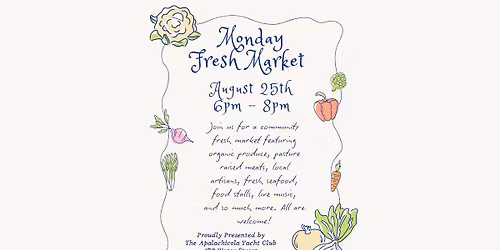 Monday
Fresh Market
August 25th
6pm - 8pm
Join us for a community
fresh market featuring
organic produce, pasture
raised meats, local
artisans, fresh seafood,
food stalls, live music,
and so much more. All are
welcome!
Proudly Presented by
The Apalachicola Yacht Club